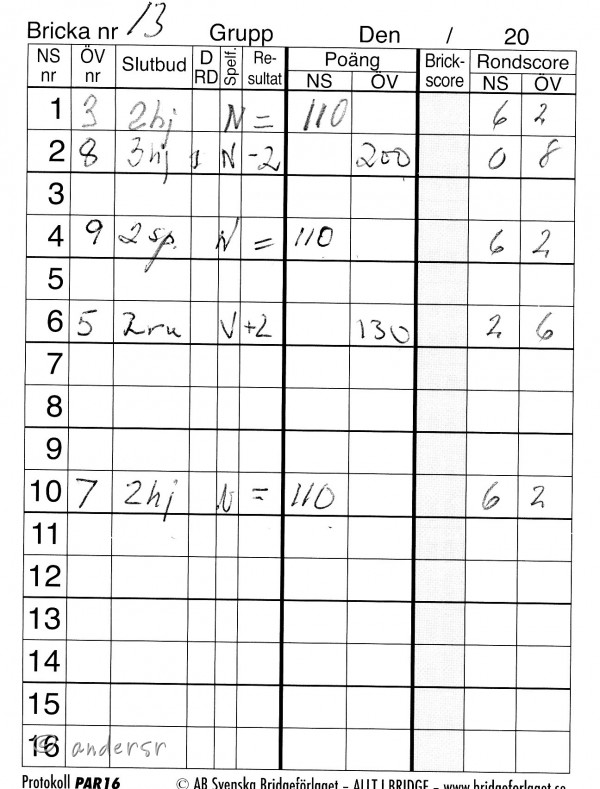 Bricka nr 13 Grupp Den / 20
NS nr ÖV nr Slutbud D RD Spelf. Re-sultat Poäng NS ÖV Brick-score Rondscore NS ÖV
1 3 2hj N = 110 6 2
2 8 3hj N -2 200 0 8
3
4 9 2 sp. N = 110 6 2
5
6 5 2ru V +2 130 2 6
7
8
9
10 7 2hj N = 110 6 2
11
12
13
14
15
16 © andersr
Protokoll PAR16 © AB Svenska Bridgeförlaget – ALLT I BRIDGE – www.bridgeforlaget.se